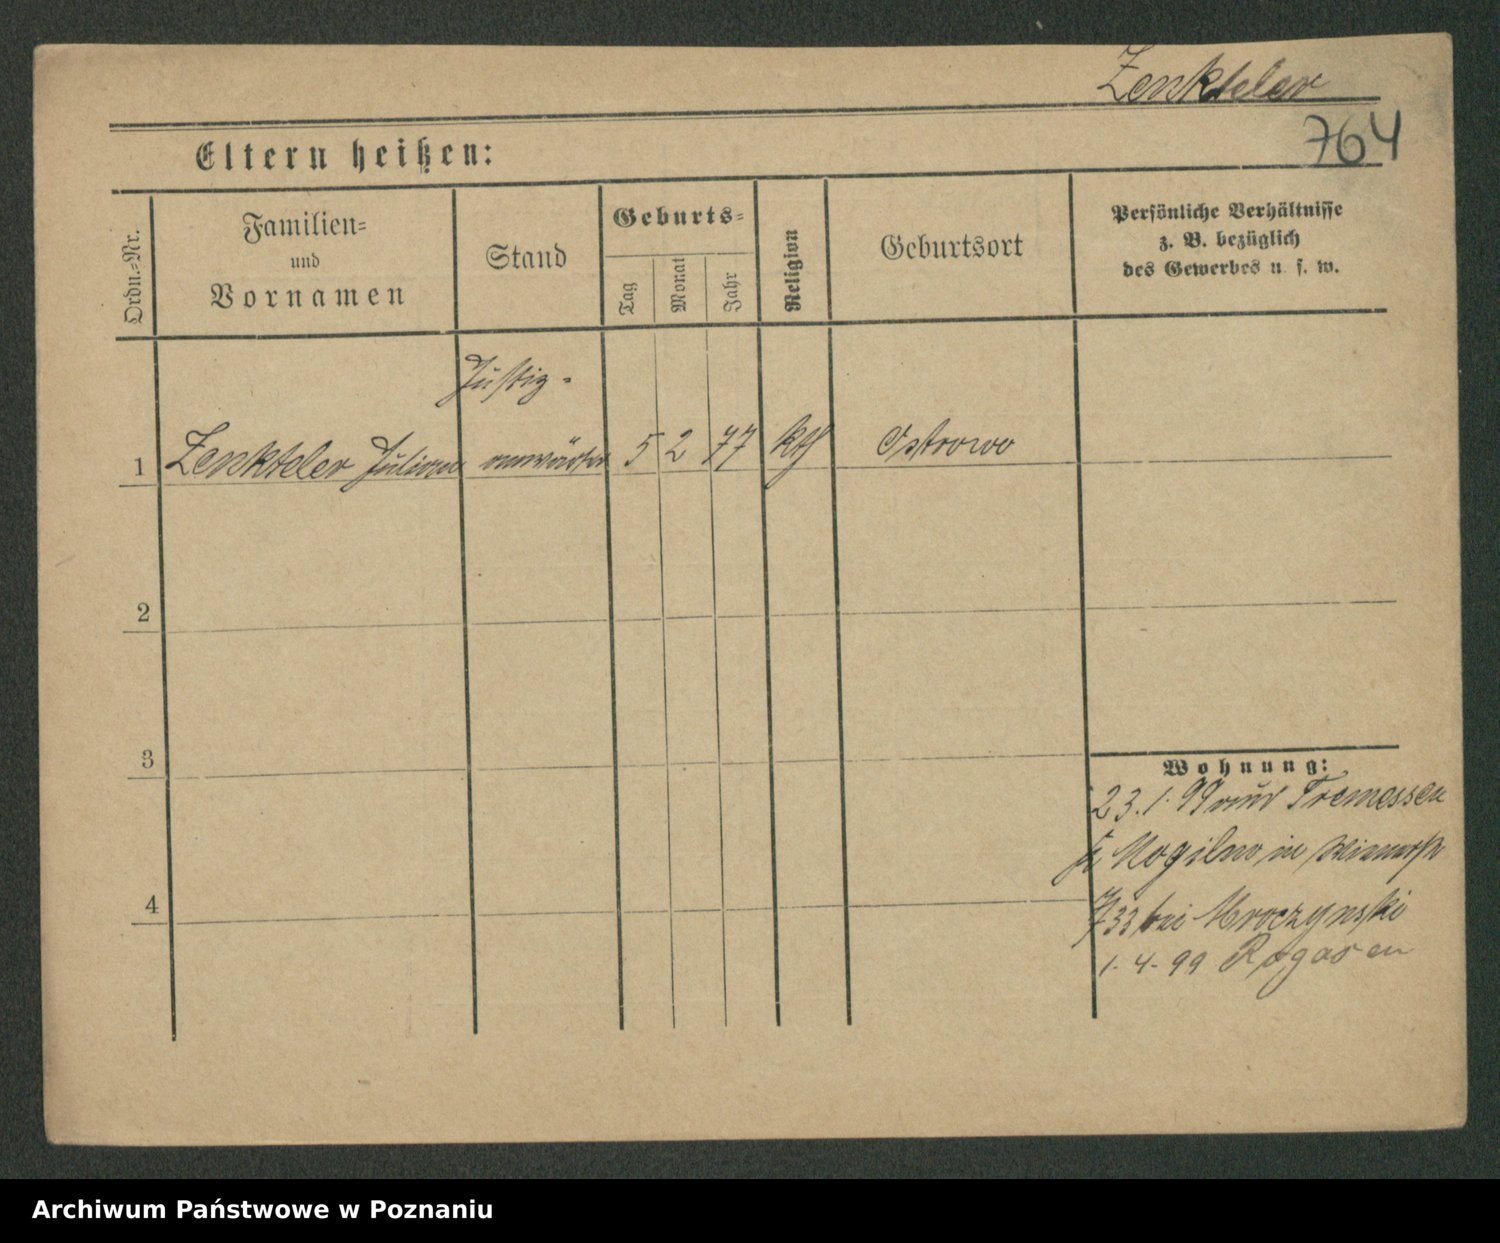 Zenkteler
764
Eltern heißen:
Ordn.=Nr.
Familien=
und
Vornamen
Stand
Geburts=
Tag
Monat
Jahr
Religion
Geburtsort
Persönliche Verhältnisse
z. B. bezüglich
des Gewerbes u. s. w.
Justiz-
1 Zenkteler Julian anwärter 5 2 77 kth Ostrowo
2
3
4
Wohnung:
23.1.99 aus Tremessen
Kr. Mogilno in
733 bei Mroczynski
1.4.99 Rogasen
Archiwum Państwowe w Poznaniu